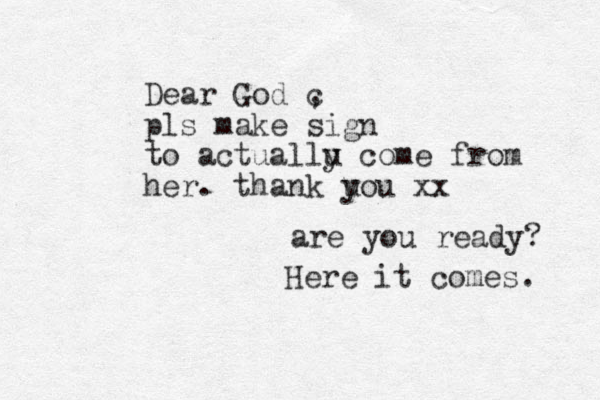 Dear God ,
pls make sign
to actually come from
her. thank you xx
are you ready?
Here it comes.